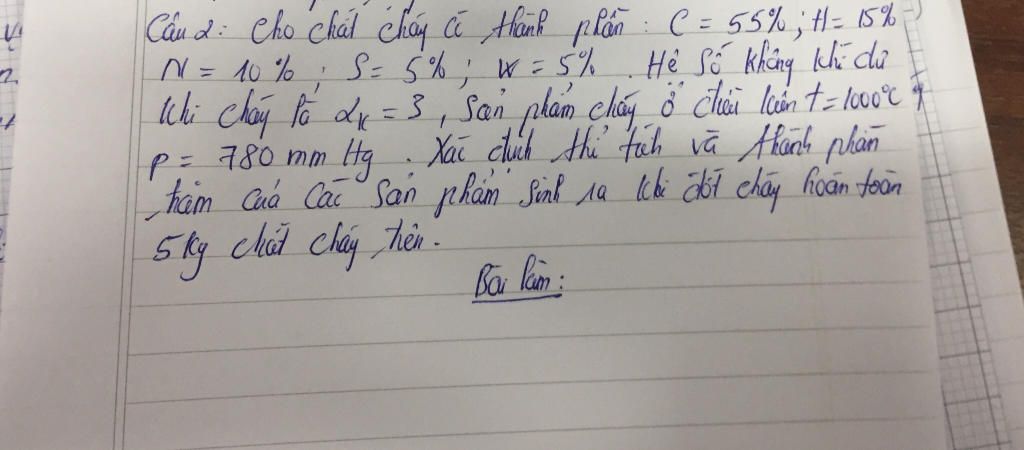 Câu 2: Cho chất cháy có thành phần: C = 55%; H = 15%
N = 10%; S = 5%; W = 5%. Hệ số không khí dư
khi cháy là αK = 3, Sản phẩm cháy ở điều kiện t = 1000°C,
P = 780 mm Hg. Xác định thể tích và thành phần
trăm của các sản phẩm sinh ra khi đốt cháy hoàn toàn
5 kg chất cháy trên.
Bài làm: